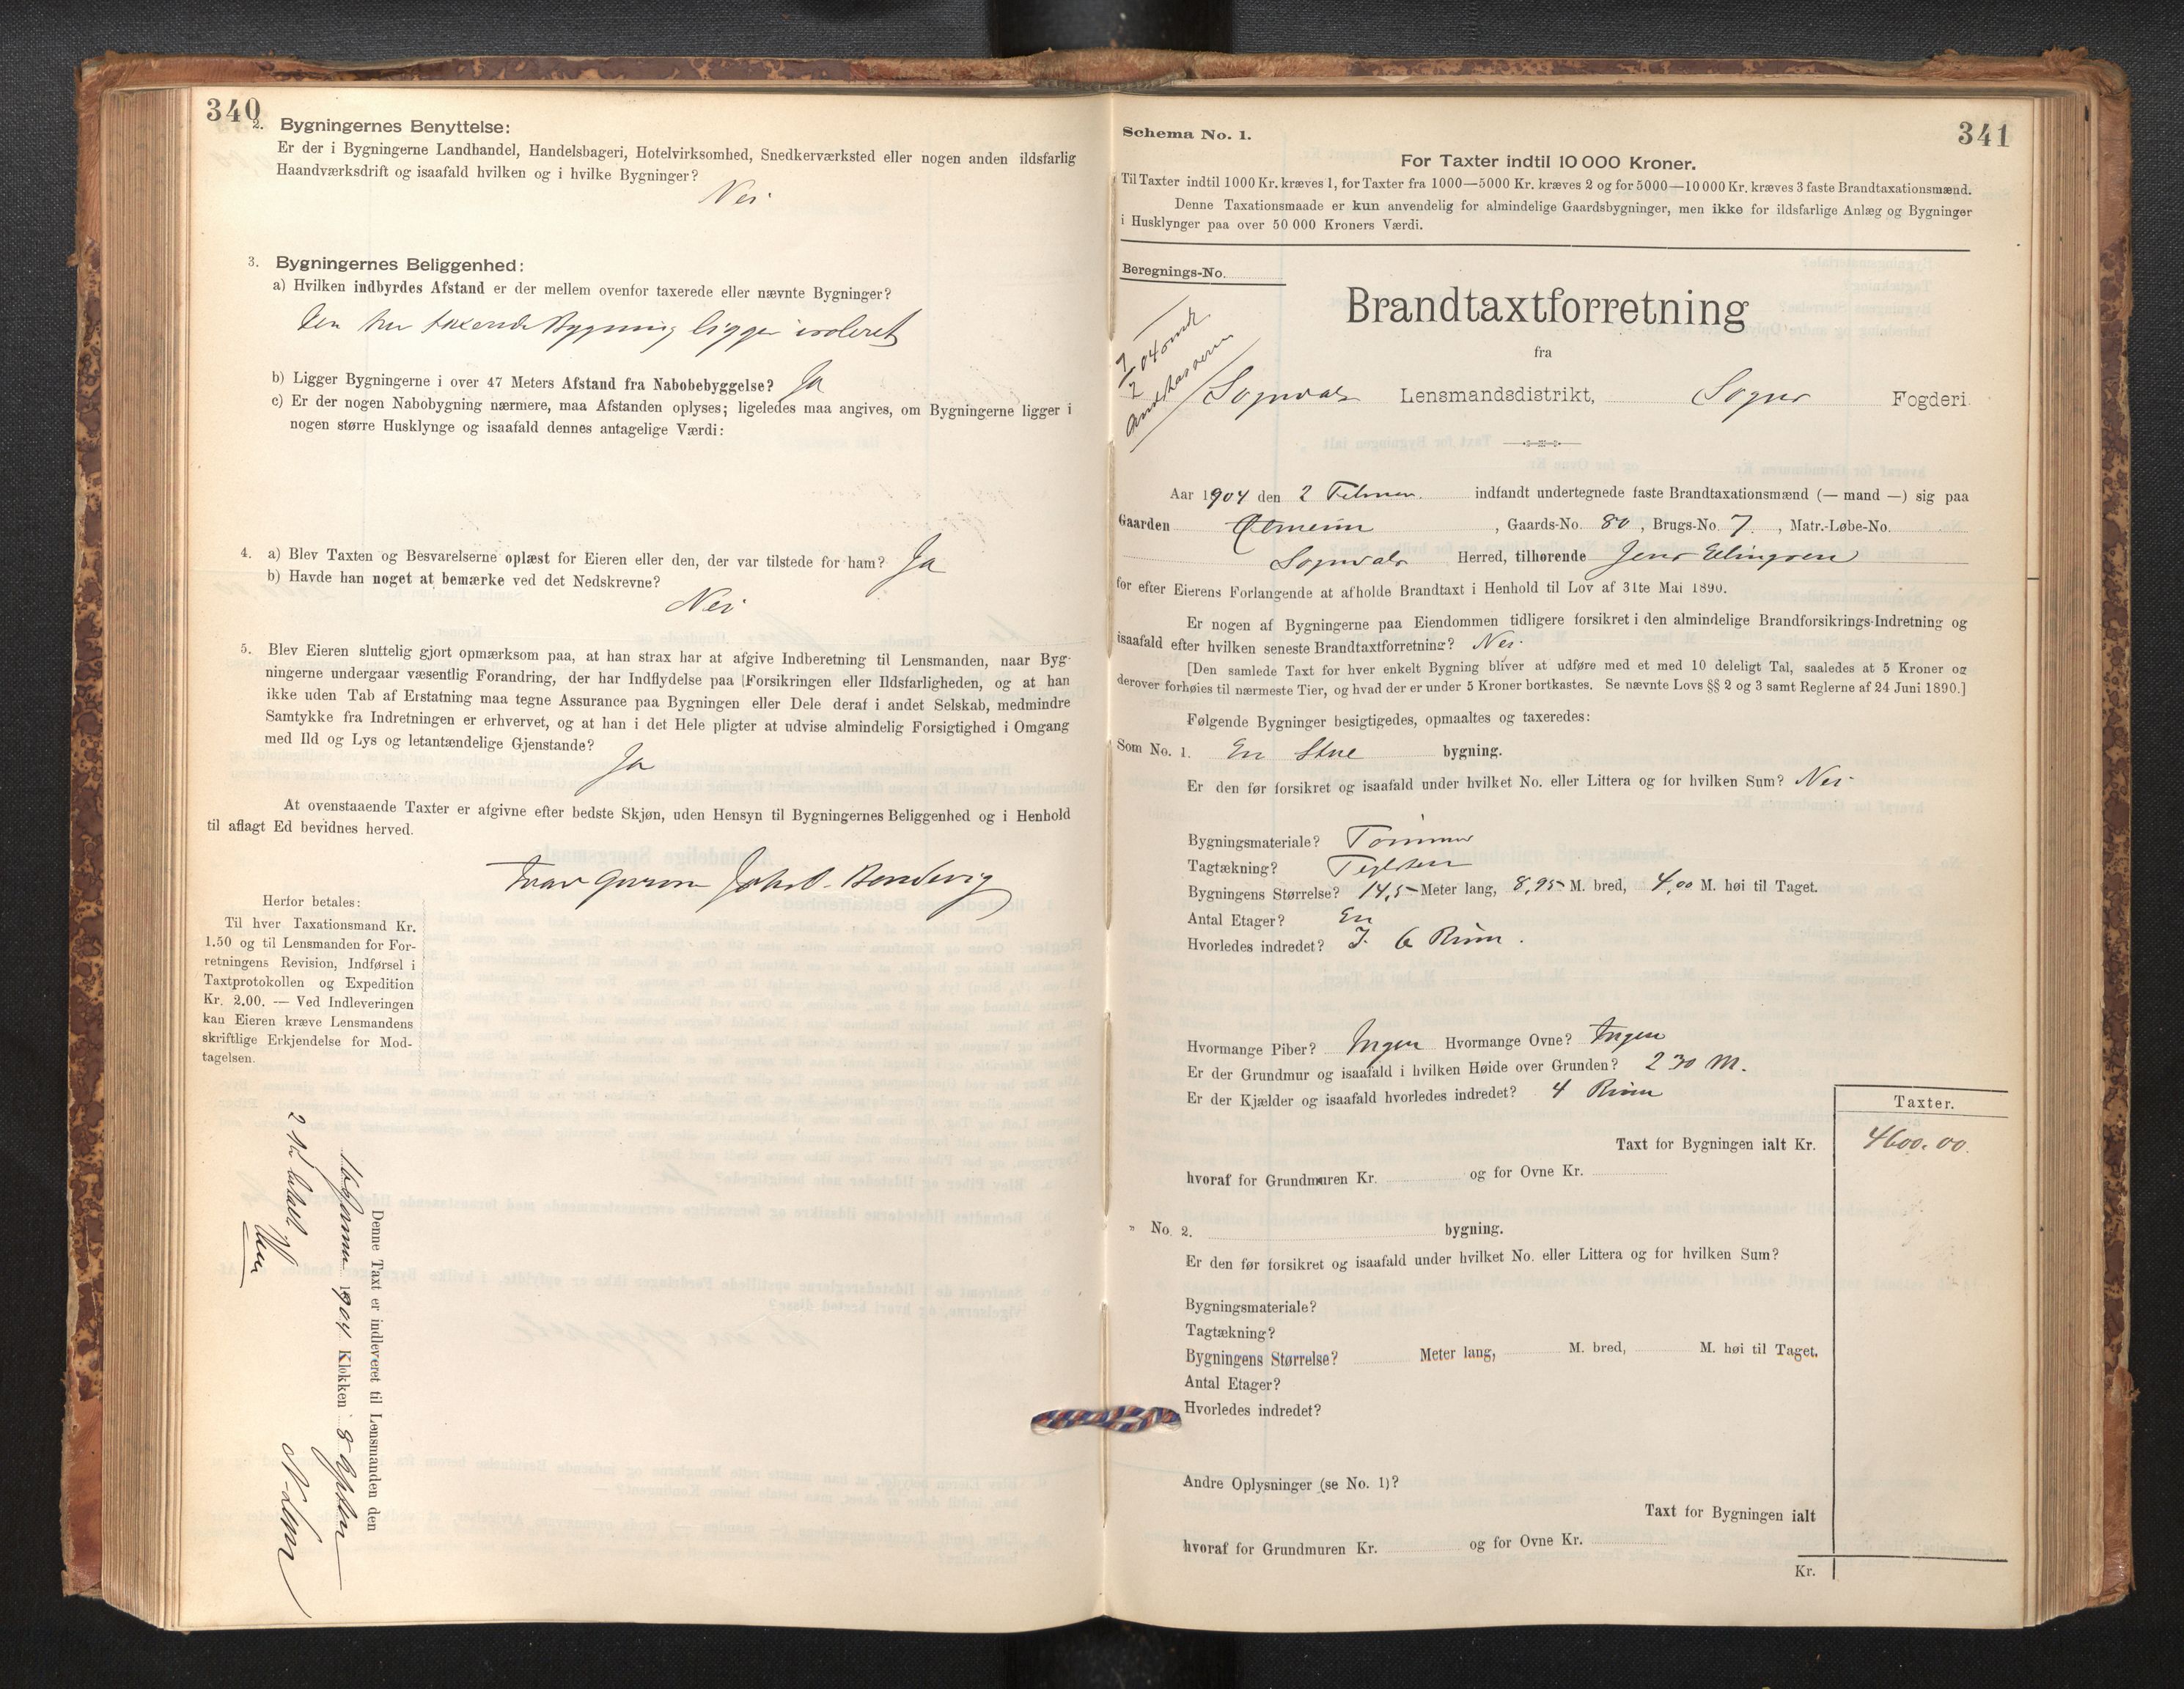 340
2. Bygningernes Benyttelse:
Er der i Bygningerne Landhandel, Handelsbageri, Hotelvirksomhed, Snedkerværksted eller nogen anden ildsfarlig
Haandværksdrift og isaafald hvilken og i hvilke Bygninger?
Nei
3. Bygningernes Beliggenhed:
a) Hvilken indbyrdes Afstand er der mellem ovenfor taxerede eller nævnte Bygninger?
Den her taxerede Bygning ligger isoleret
b) Ligger Bygningerne i over 47 Meters Afstand fra Nabobebyggelse? Ja
c) Er der nogen Nabobygning nærmere, maa Afstanden oplyses; ligeledes maa angives, om Bygningerne ligger i
nogen større Husklynge og isaafald dennes antagelige Værdi:
4. a) Blev Taxten og Besvarelserne oplæst for Eieren eller den, der var tilstede for ham? Ja
b) Havde han noget at bemærke ved det Nedskrevne?
Nei
5. Blev Eieren sluttelig gjort opmærksom paa, at han strax har at afgive Indberetning til Lensmanden, naar Byg-
ningerne undergaar væsentlig Forandring, der har Indflydelse paa Forsikringen eller Ildsfarligheden, og at han
ikke uden Tab af Erstatning maa tegne Assurance paa Bygningen eller Dele deraf i andet Selskab, medmindre
Samtykke fra Indretningen er erhvervet, og at han i det Hele pligter at udvise almindelig Forsigtighed i Omgang
med Ild og Lys og letantændelige Gjenstande?
Ja
At ovenstaaende Taxter er afgivne efter bedste Skjøn, uden Hensyn til Bygningernes Beliggenhed og i Henhold
til aflagt Ed bevidnes herved.
Herfor betales:
Til hver Taxationsmand Kr.
1.50 og til Lensmanden for For-
retningens Revision, Indførsel i
Taxtprotokollen og Expedition
Kr. 2.00. — Ved Indleveringen
kan Eieren kræve Lensmandens
skriftlige Erkjendelse for Mod-
tagelsen.
Denne Taxt er indleveret til Lensmanden den
1904 Klokken 8
2 Kr betalt
341
Schema No. 1.
For Taxter indtil 10 000 Kroner.
Til Taxter indtil 1000 Kr. kræves 1, for Taxter fra 1000—5000 Kr. kræves 2 og for 5000—10 000 Kr. kræves 3 faste Brandtaxationsmænd.
Denne Taxationsmaade er kun anvendelig for almindelige Gaardsbygninger, men ikke for ildsfarlige Anlæg og Bygninger
i Husklynger paa over 50 000 Kroners Værdi.
Beregnings-No.
Brandtaxtforretning
fra
Sogndals Lensmandsdistrikt, Sogns Fogderi
Aar 1904 den 2 Februar indfandt undertegnede faste Brandtaxationsmænd (— mand —) sig paa
Gaarden , Gaards-No. 80, Brugs-No. 7, Matr.-Løbe-No.
Sogndals Herred, tilhørende Jens Ellingsen
for efter Eierens Forlangende at afholde Brandtaxt i Henhold til Lov af 31te Mai 1890.
Er nogen af Bygningerne paa Eiendommen tidligere forsikret i den almindelige Brandforsikrings-Indretning og
isaafald efter hvilken seneste Brandtaxtforretning? Nei
[Den samlede Taxt for hver enkelt Bygning bliver at udføre med et med 10 deleligt Tal, saaledes at 5 Kroner og
derover forhøies til nærmeste Tier, og hvad der er under 5 Kroner bortkastes. Se nævnte Lovs §§ 2 og 3 samt Reglerne af 24 Juni 1890.]
Følgende Bygninger besigtigedes, opmaaltes og taxeredes:
Som No. 1. En Stue bygning.
Er den før forsikret og isaafald under hvilket No. eller Littera og for hvilken Sum? Nei
Bygningsmateriale? Tømmer
Tagtækning? Teglsten
Bygningens Størrelse? 14,5 Meter lang, 8,95 M. bred, 4,00 M. høi til Taget.
Antal Etager? En
Hvorledes indredet? I 6 Rum.
Hvormange Piber? Ingen Hvormange Ovne? Ingen
Er der Grundmur og isaafald i hvilken Høide over Grunden? 2 30 M.
Er der Kjælder og isaafald hvorledes indredet? 4 Rum
Taxter.
Taxt for Bygningen ialt Kr. 4600.00.
hvoraf for Grundmuren Kr. og for Ovne Kr.
" No. 2. bygning.
Er den før forsikret og isaafald under hvilket No. eller Littera og for hvilken Sum?
Bygningsmateriale?
Tagtækning?
Bygningens Størrelse? Meter lang, M. bred, M. høi til Taget.
Antal Etager?
Hvorledes indredet?
Andre Oplysninger (se No. 1)?
Taxt for Bygningen ialt
hvoraf for Grundmuren Kr. og for Ovne Kr.
Kr.